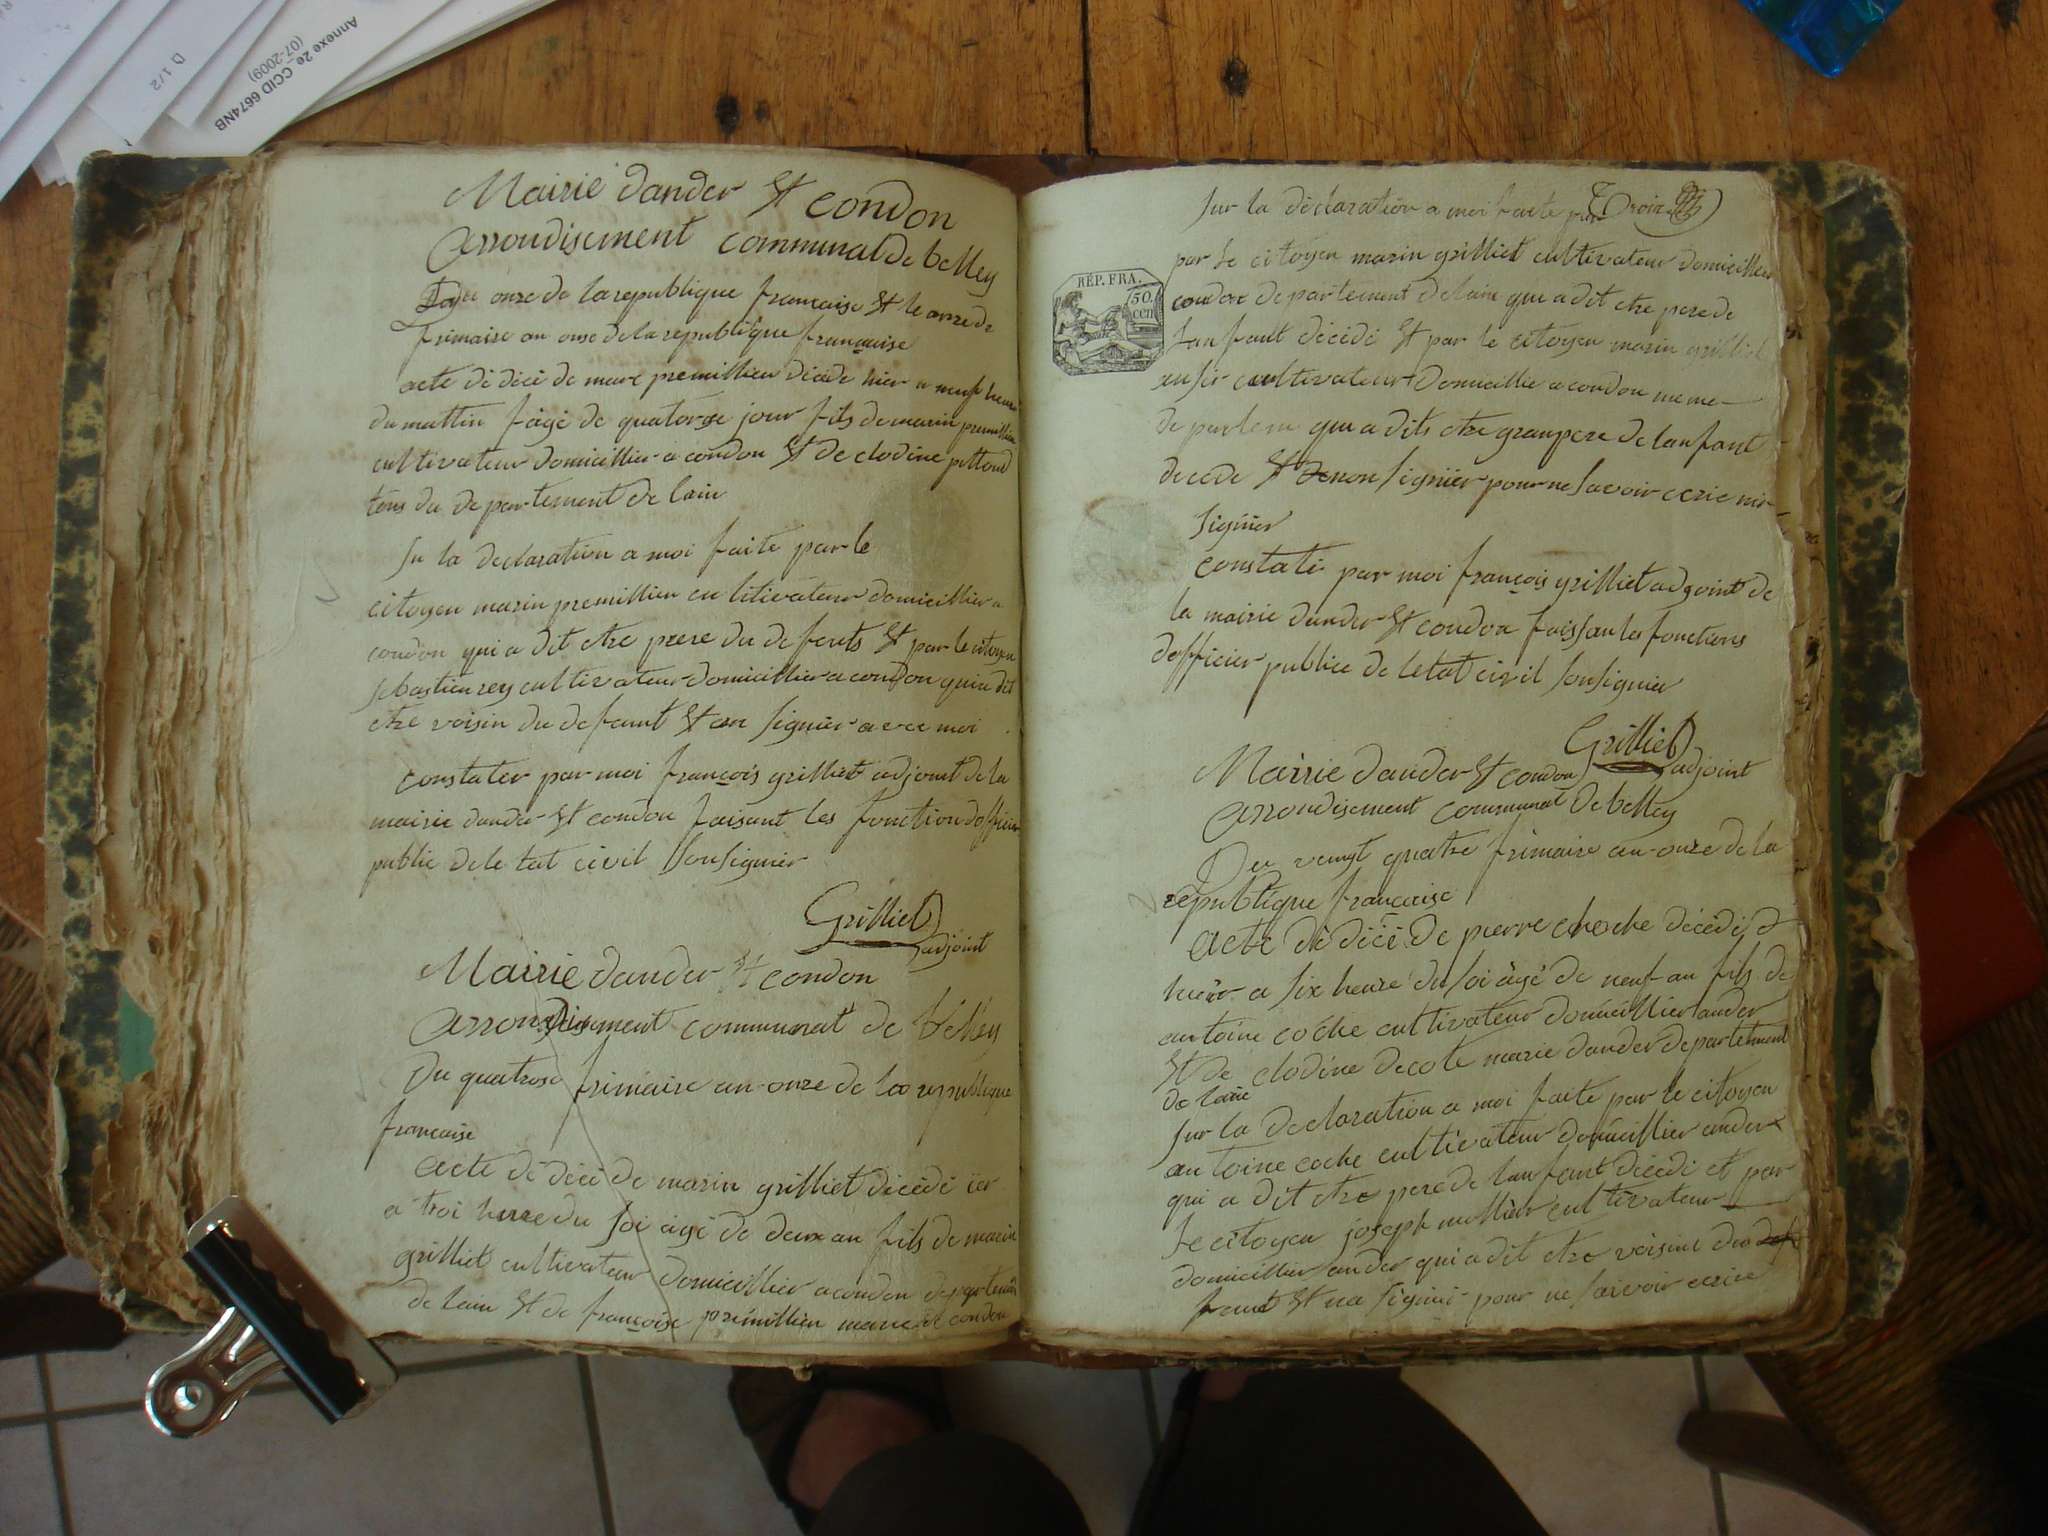 Annexe 2e_CCID 6674NB
(07-2009)
D 1/2
Mairie dander et condon
arrondisement communal de belley
onze de la republique francaise et le onze de
frimaire an onse de la republique francaise
acte de décé de marc premillieu décéde hier a neuf heure
du mattin fagé de quatorze jour fils de marin premillieu
cultivateur domicillier a condon et de clodine
tous du de partement de lain
su la declaration a moi faite par le
citoyen marin premillieu cu litivateur domicillier a
condon qui a dit etre prere du defents et par le citoyen
sebastien rey cultivateur domicillier a condon qui a dit
etre voisin du defeunt et on signier avec moi
constater par moi francois grilliet adjoint de la
mairie dander et condon faisant les fonction dofficier
public de le tat civil sousignier
Grilliet
adjoint
Mairie dander et condon
arrondisement communal de belley
Du quatrose frimaire an onze de la republique
francaise
acte de décé de marin grilliet décédé ier
a troi heure du soi agé de deux an fils de marin
grilliet cultivateur domicillier a condon departement
de lain et de francoise prémillieu marié a condon
sur la déclaration a moi faite par Trois
par le citoyen marin grilliet cultivateur domicillier
condon departement de lain qui a dit etre pere de
lanfant décédé et par le citoyen marin grilliet
cultivateur domicillie a condon meme
de partem qui a dits etre granpere de lanfant
decede et non signiier pour ne savoir ecrie nir
signier
constaté par moi francois grilliet adgoint de
la mairie dander et condon faissan les fonctions
dofficier publice de letat civil sonsignier
Grilliet
adjoint
Mairie dander et condon
arrondisement communal de belley
Du veingt quatre frimaire an onze de la
republique francaise
acte de décé de pierre choche décédé
hieir a six heure du soi agé de neuf an fils de
antoine coche cultivateur domicillier ander
et de clodine decote marie dander departetment
de laine
sur la declaration a moi faite par le citoyen
antoine coche cultivateur domicillier ander
qui a dit etre pere de lanfant décédé et par
le citoyen joseph mollier cultivateur
domicillier ander qui a dit etre voisine du def
feunt et na signié pour ne saivoir ecrire
RÉP. FRA.
50.
CEN